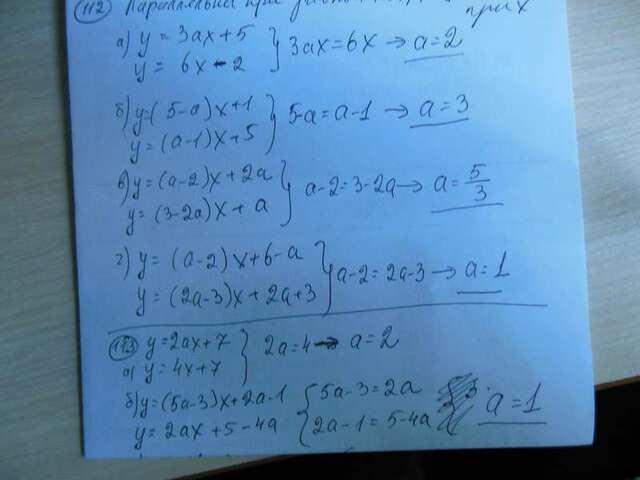 112 Параллельны при
при x
а) y = 3ax + 5
y = 6x - 2 } 3ax = 6x → a = 2
б) y = (5-a)x + 1
y = (a-1)x + 5 } 5-a = a-1 → a = 3
в) y = (a-2)x + 2a
y = (3-2a)x + a } a-2 = 3-2a → a = 5/3
г) y = (a-2)x + 6-a
y = (2a-3)x + 2a+3 } a-2 = 2a-3 → a = 1
113 y = 2ax + 7
а) y = 4x + 7 } 2a = 4 → a = 2
б) y = (5a-3)x + 2a-1 { 5a-3 = 2a
y = 2ax + 5-4a { 2a-1 = 5-4a a = 1